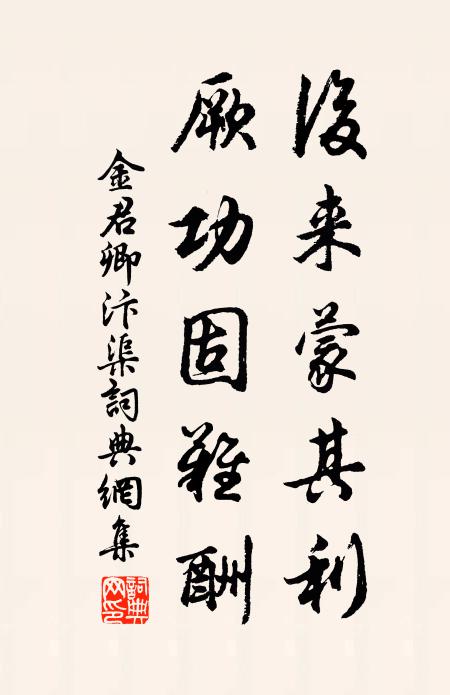 後来蒙其利
厥功固難酬
金君卿汴渠詞典網集
詞典网印